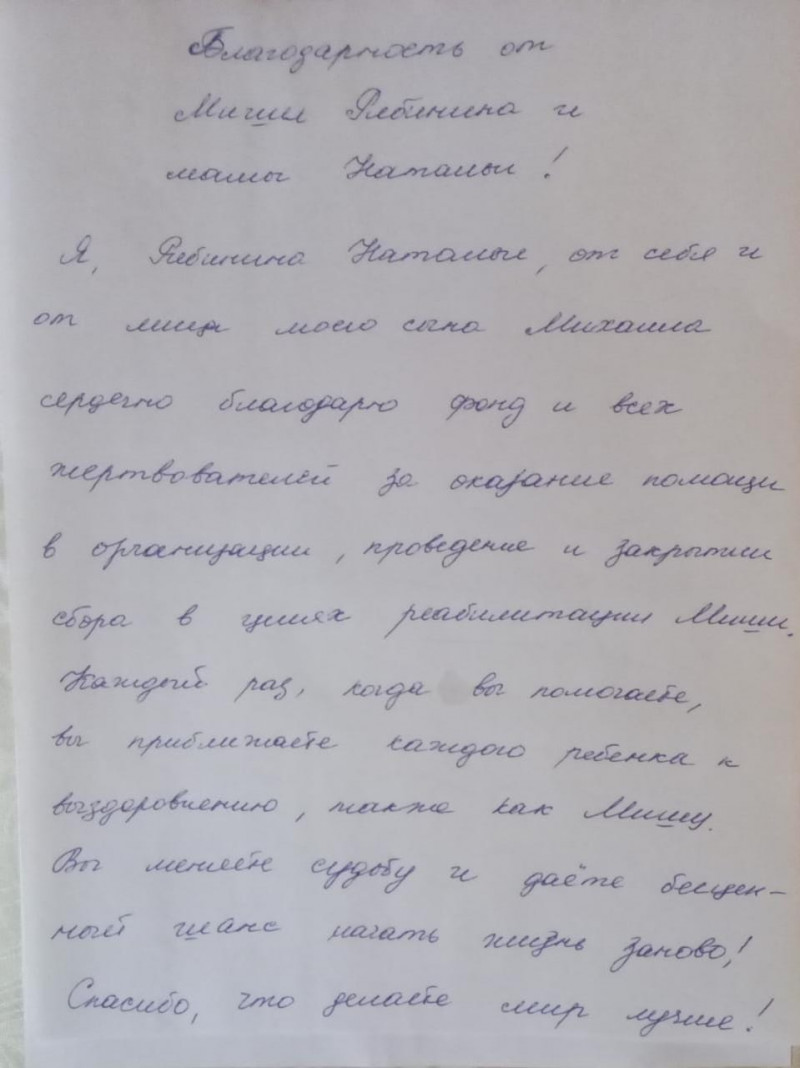 Благодарность от
Миши Рябинина и
мамы Натальи!
Я, Рябинина Наталья, от себя и
от лица моего сына Михаила
сердечно благодарю фонд и всех
жертвователей за оказание помощи
в организации, проведение и закрытии
сбора в целях реабилитации Миши.
Каждый раз, когда вы помогаете,
вы приближаете каждого ребенка к
выздоровлению, также как Мишу.
Вы меняете судьбу и даёте бесцен-
ный шанс начать жизнь заново!
Спасибо, что делаете мир лучше!